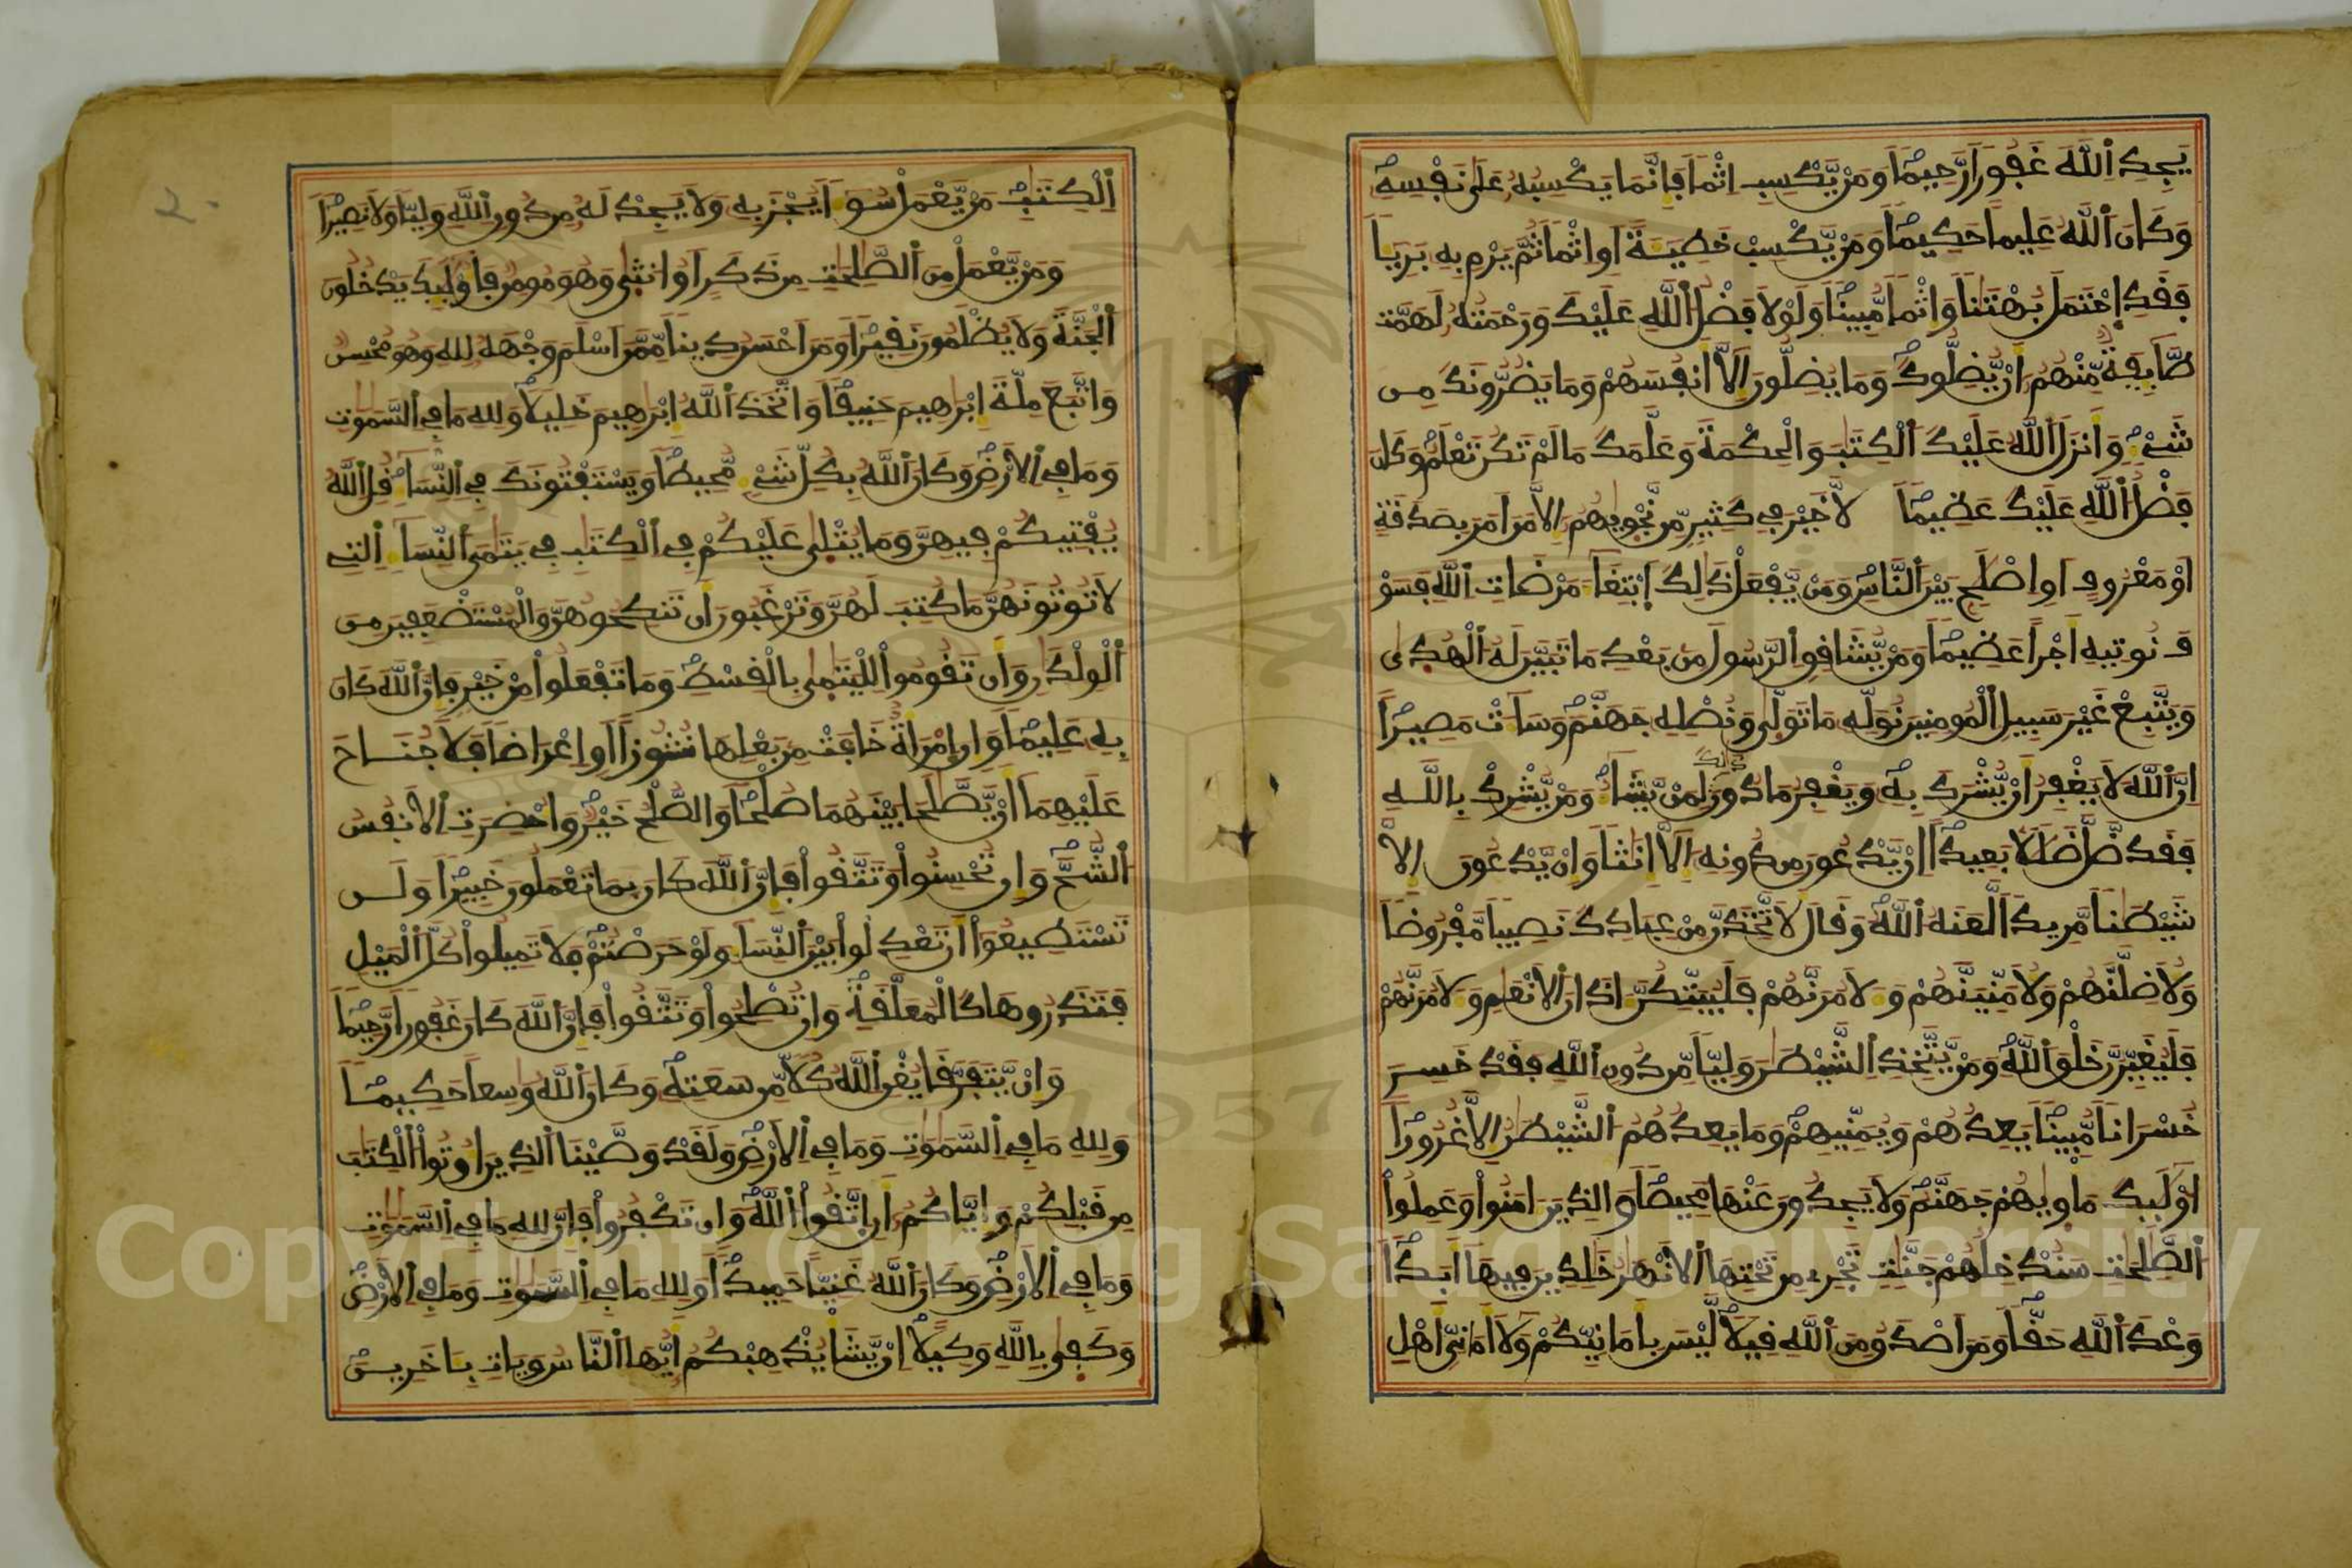 يَجِدِ اِ۬للَّهَ غَفُورٗا رَّحِيمٗا وَمَنْ يَّكْسِبِ اِثْمٗا فَإِنَّمَا يَكْسِبُهُۥ عَلَىٰ نَفْسِهِۦ
وَكَانَ اَ۬للَّهُ عَلِيماً حَكِيمٗا وَمَنْ يَّكْسِبْ خَطِيـَٔةً اَوِ اِثْمٗا ثُمَّ يَرْمِ بِهِۦ بَرِيـٔاٗ
فَقَدِ اِ۪حْتَمَلَ بُهْتَٰناٗ وَإِثْمٗا مُّبِينٗا وَلَوْلَا فَضْلُ اُ۬للَّهِ عَلَيْكَ وَرَحْمَتُهُۥ لَهَمَّت
طَّآئِفَةٞ مِّنْهُمُۥٓ أَنْ يُّضِلُّوكَ وَمَا يُضِلُّونَ إِلَّآ أَنفُسَهُمْ وَمَا يَضُرُّونَكَ مِن
شَےْءٖ وَأَنزَلَ اَ۬للَّهُ عَلَيْكَ اَ۬لْكِتَٰبَ وَالْحِكْمَةَ وَعَلَّمَكَ مَا لَمْ تَكُن تَعْلَمُ وَكَانَ
فَضْلُ اُ۬للَّهِ عَلَيْكَ عَظِيمٗا لَّا خَيْرَ فِے كَثِيرٖ مِّن نَّجْوٜىٰهُمُۥٓ إِلَّا مَنَ اَمَرَ بِصَدَقَةٍ
اَوْ مَعْرُوفٍ اَوِ اِصْلَٰحِۢ بَيْنَ اَ۬لنَّاسِ وَمَنْ يَّفْعَلْ ذَٰلِكَ اَ۪بْتِغَآءَ مَرْضَاتِ اِ۬للَّهِ فَسَوْ
فَ نُوتِيهِ أَجْراً عَظِيمٗا وَمَنْ يُّشَاقِقِ اِ۬لرَّسُولَ مِنۢ بَعْدِ مَا تَبَيَّنَ لَهُ اُ۬لْهُد۪ىٰ
وَيَتَّبِعْ غَيْرَ سَبِيلِ اِ۬لْمُومِنِينَ نُوَلِّهِۦ مَا تَوَلّ۪ىٰ وَنُصْلِهِۦ جَهَنَّمَ وَسَآءَتْ مَصِيراً
اِنَّ اَ۬للَّهَ لَا يَغْفِرُ أَنْ يُّشْرَكَ بِهِۦ وَيَغْفِرُ مَا دُونَ ذَٰلِكَ لِمَنْ يَّشَآءُ وَمَنْ يُّشْرِكْ بِاللَّهِ
فَقَد ضَّلَّ ضَلَٰلَاۢ بَعِيداً اِنْ يَّدْعُونَ مِن دُونِهِۦٓ إِلَّآ إِنَٰثاٗ وَإِنْ يَّدْعُونَ إِلَّا
شَيْطَٰناٗ مَّرِيداٗ لَّعَنَهُ اُ۬للَّهُ وَقَالَ لَأَتَّخِذَنَّ مِنْ عِبَادِكَ نَصِيباٗ مَّفْرُوضاٗ
وَلَأُضِلَّنَّهُمْ وَلَأُمَنِّيَنَّهُمْ وَءَلَامُرَنَّهُمْ فَلَيُبَتِّكُنَّ ءَاذَانَ اَ۬لَانْعَٰمِ وَءَلَامُرَنَّهُمْ
فَلَيُغَيِّرُنَّ خَلْقَ اَ۬للَّهِ وَمَنْ يَّتَّخِذِ اِ۬لشَّيْطَٰنَ وَلِيّاٗ مِّن دُونِ اِ۬للَّهِ فَقَدْ خَسِرَ
خُسْرَاناٗ مُّبِينٗا يَعِدُهُمْ وَيُمَنِّيهِمْ وَمَا يَعِدُهُمُ اُ۬لشَّيْطَٰنُ إِلَّا غُرُوراً
اُوْلَٰٓئِكَ مَأْوٜىٰهُمْ جَهَنَّمُ وَلَا يَجِدُونَ عَنْهَا مَحِيصٗا وَالذِينَ ءَامَنُواْ وَعَمِلُواْ
اُ۬لصَّٰلِحَٰتِ سَنُدْخِلُهُمْ جَنَّٰتٖ تَجْرِے مِن تَحْتِهَا اَ۬لَانْهَٰرُ خَٰلِدِينَ فِيهَآ أَبَداٗ
وَعْدَ اَ۬للَّهِ حَقّاٗ وَمَنَ اَصْدَقُ مِنَ اَ۬للَّهِ قِيلٗا لَّيْسَ بِأَمَانِيِّكُمْ وَلَآ أَمَانِيِّ أَهْلِ
اِ۬لْكِتَٰبِ مَنْ يَّعْمَلْ سُوٓءاٗ يُجْزَ بِهِۦ وَلَا يَجِدْ لَهُۥ مِن دُونِ اِ۬للَّهِ وَلِيّاٗ وَلَا نَصِيراٗ
وَمَنْ يَّعْمَلْ مِنَ اَ۬لصَّٰلِحَٰتِ مِن ذَكَرٍ اَوُ ا۟نث۪ىٰ وَهُوَ مُومِنٞ فَأُوْلَٰٓئِكَ يَدْخُلُونَ
اَ۬لْجَنَّةَ وَلَا يُظْلَمُونَ نَقِيراٗ وَمَنَ اَحْسَنُ دِيناٗ مِّمَّنَ اَسْلَمَ وَجْهَهُۥ لِلهِ وَهُوَ مُحْسِنٞ
وَاتَّبَعَ مِلَّةَ إِبْرَٰهِيمَ حَنِيفاٗ وَاتَّخَذَ اَ۬للَّهُ إِبْرَٰهِيمَ خَلِيلٗا وَلِلهِ مَا فِے اِ۬لسَّمَٰوَٰتِ
وَمَا فِے اِ۬لَارْضِ وَكَانَ اَ۬للَّهُ بِكُلِّ شَےْءٖ مُّحِيطاٗ وَيَسْتَفْتُونَكَ فِے اِ۬لنِّسَآءِ قُلِ اِ۬للَّهُ
يُفْتِيكُمْ فِيهِنَّ وَمَا يُتْل۪ىٰ عَلَيْكُمْ فِے اِ۬لْكِتَٰبِ فِے يَتَٰمَى اَ۬لنِّسَآءِ اِ۬لتِے
لَا تُوتُونَهُنَّ مَا كُتِبَ لَهُنَّ وَتَرْغَبُونَ أَن تَنكِحُوهُنَّ وَالْمُسْتَضْعَفِينَ مِنَ
اَ۬لْوِلْدَٰنِ وَأَن تَقُومُواْ لِلْيَتَٰم۪ىٰ بِالْقِسْطِ وَمَا تَفْعَلُواْ مِنْ خَيْرٖ فَإِنَّ اَ۬للَّهَ كَانَ
بِهِۦ عَلِيمٗا وَإِنِ اِ۪مْرَأَةٌ خَافَتْ مِنۢ بَعْلِهَا نُشُوزاً اَوِ اِعْرَاضاٗ فَلَا جُنَاحَ
عَلَيْهِمَآ أَنْ يَّصَّٰلَحَا بَيْنَهُمَا صُلْحاٗ وَالصُّلْحُ خَيْرٞ وَأُحْضِرَتِ اِ۬لَانفُسُ
اُ۬لشُّحَّ وَإِن تُحْسِنُواْ وَتَتَّقُواْ فَإِنَّ اَ۬للَّهَ كَانَ بِمَا تَعْمَلُونَ خَبِيراٗ وَلَن
تَسْتَطِيعُوٓاْ أَن تَعْدِلُواْ بَيْنَ اَ۬لنِّسَآءِ وَلَوْ حَرَصْتُمْ فَلَا تَمِيلُواْ كُلَّ اَ۬لْمَيْلِ
فَتَذَرُوهَا كَالْمُعَلَّقَةِ وَإِن تُصْلِحُواْ وَتَتَّقُواْ فَإِنَّ اَ۬للَّهَ كَانَ غَفُوراٗ رَّحِيماٗ
وَإِنْ يَّتَفَرَّقَا يُغْنِ اِ۬للَّهُ كُلّاٗ مِّن سَعَتِهِۦ وَكَانَ اَ۬للَّهُ وَٰسِعاً حَكِيماٗ
وَلِلهِ مَا فِے اِ۬لسَّمَٰوَٰتِ وَمَا فِے اِ۬لَارْضِ وَلَقَدْ وَصَّيْنَا اَ۬لذِينَ أُوتُواْ اُ۬لْكِتَٰبَ
مِن قَبْلِكُمْ وَإِيَّاكُمُۥٓ أَنِ اِ۪تَّقُواْ اُ۬للَّهَ وَإِن تَكْفُرُواْ فَإِنَّ لِلهِ مَا فِے اِ۬لسَّمَٰوَٰتِ
وَمَا فِے اِ۬لَارْضِ وَكَانَ اَ۬للَّهُ غَنِيّاً حَمِيداٗ وَلِلهِ مَا فِے اِ۬لسَّمَٰوَٰتِ وَمَا فِے اِ۬لَارْضِ
وَكَف۪ىٰ بِاللَّهِ وَكِيلاً اِنْ يَّشَأْ يُذْهِبْكُمُۥٓ أَيُّهَا اَ۬لنَّاسُ وَيَاتِ بِـَٔاخَرِينَ
٢٠
Copyright © King Saud University
1957